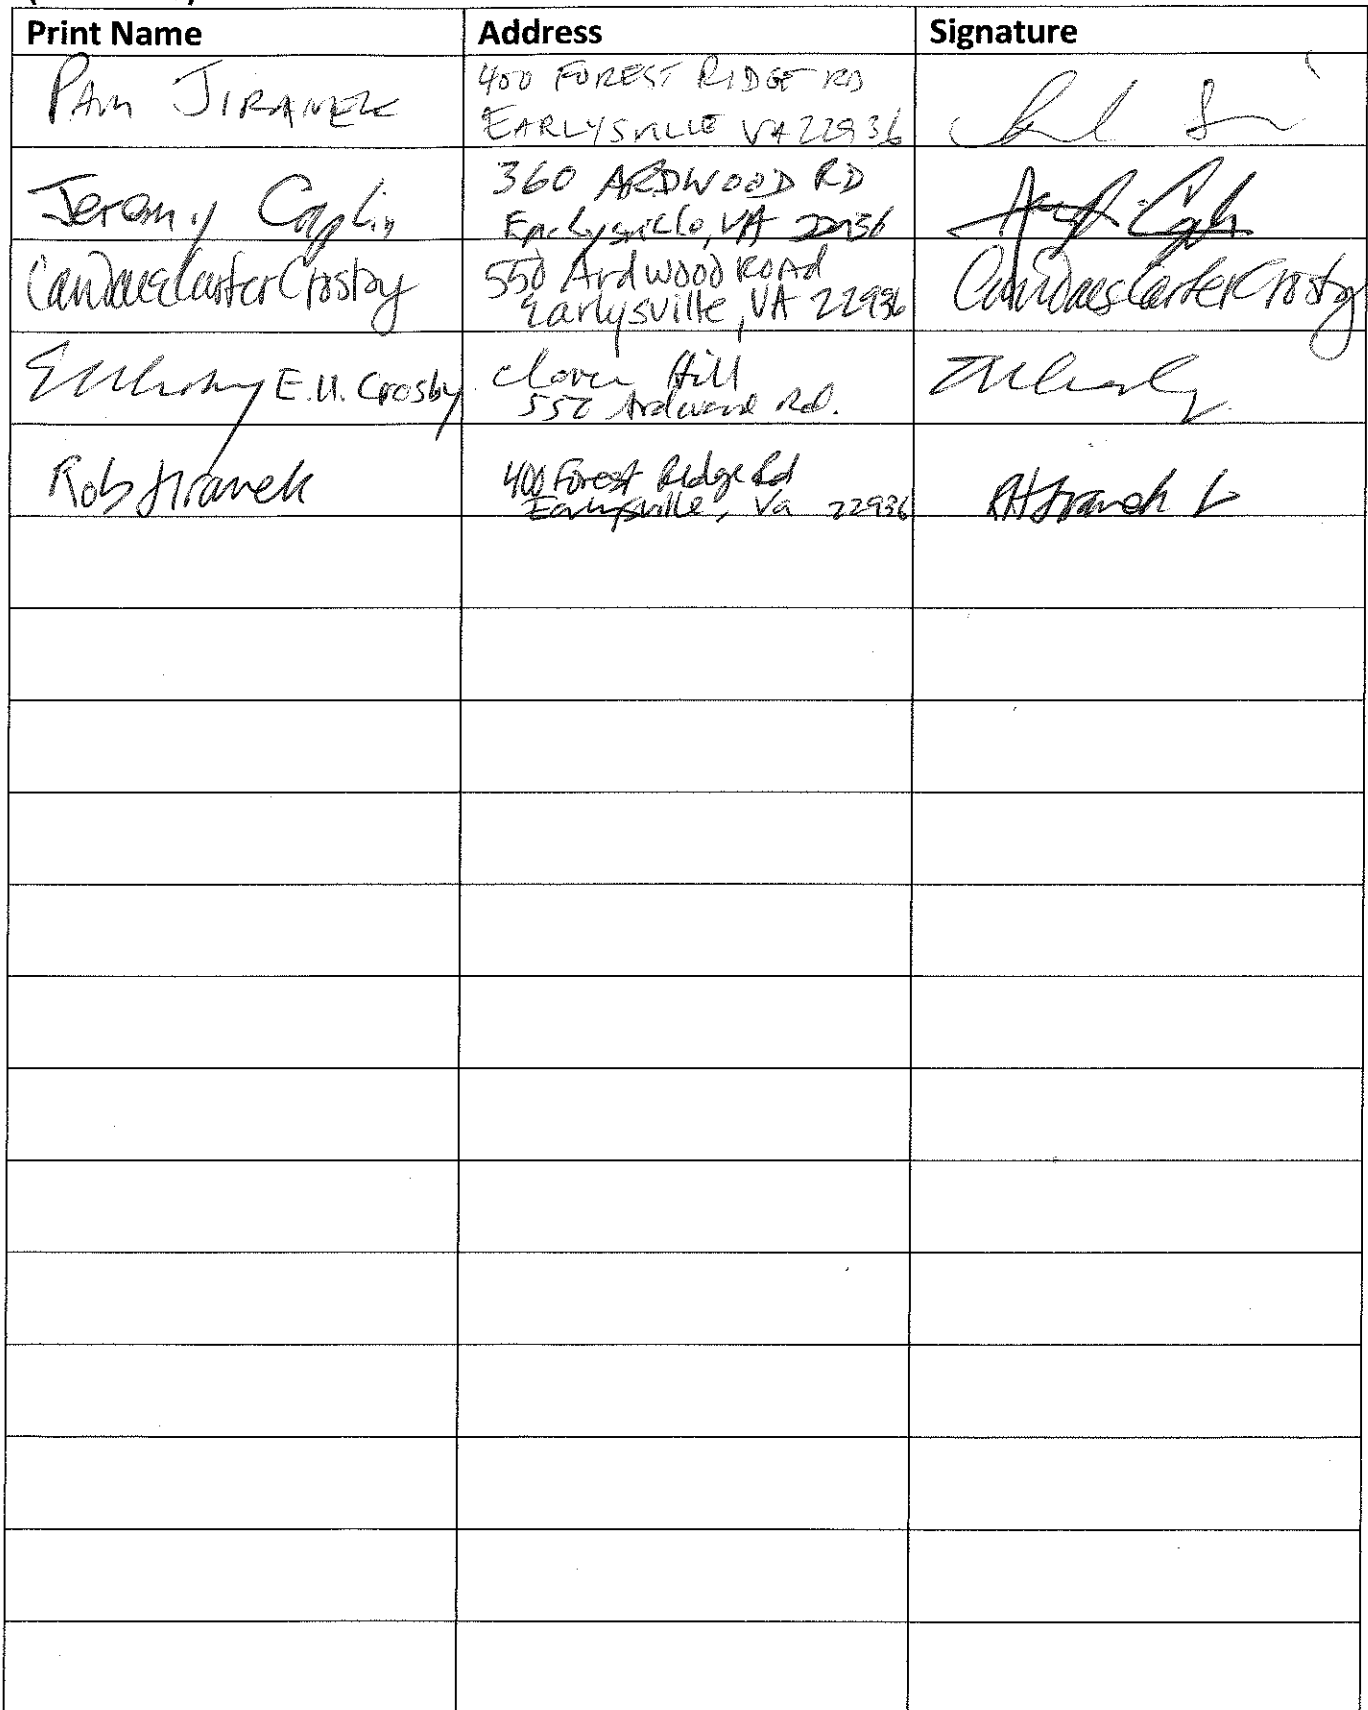 Print Name Address Signature
PAM JIRANEK
400 FOREST RIDGE RD
EARLYSVILLE VA 22936
Jeremy Caplin
360 ARDWOOD RD
Earlysville, VA 22936
Candace Carter Crosby
550 Ardwood Road
Earlysville, VA 22936
Candace Carter Crosby
E.H. Crosby
Clover Hill
550 Ardwood Rd.
Rob Jiranek
400 Forest Ridge Rd
Earlysville, Va 22936
RHJiranek